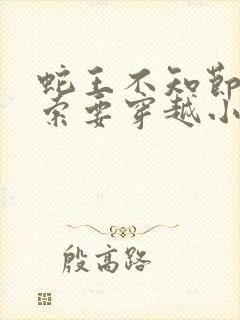 蛇王不知节
索要穿越小
殷高路